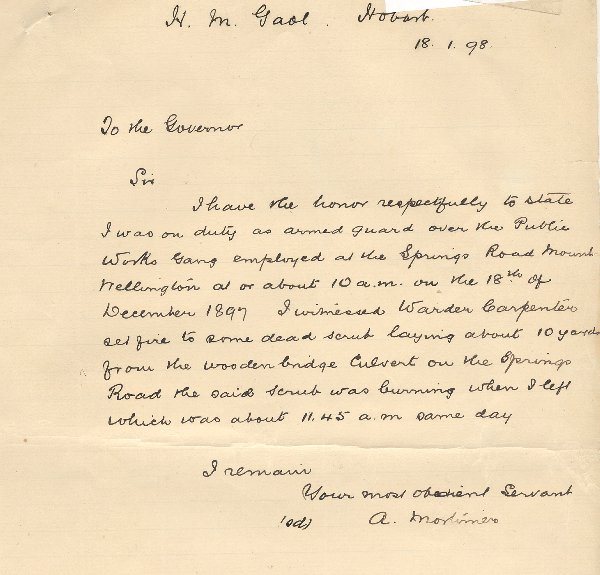 H. M. Gaol. Hobart.
18. 1. 98.
To the Governor
Sir
I have the honor respectfully to state
I was on duty as armed guard over the Public
Works Gang employed at the Springs Road Mount
Wellington at or about 10 a.m. on the 18th of
December 1897 I witnessed Warder Carpenter
set fire to some dead scrub laying about 10 yards
from the wooden bridge Culvert on the Springs
Road the said scrub was burning when I left
which was about 11.45 a.m same day
I remain
Your most obedient Servant
(sd) A. Mortimer